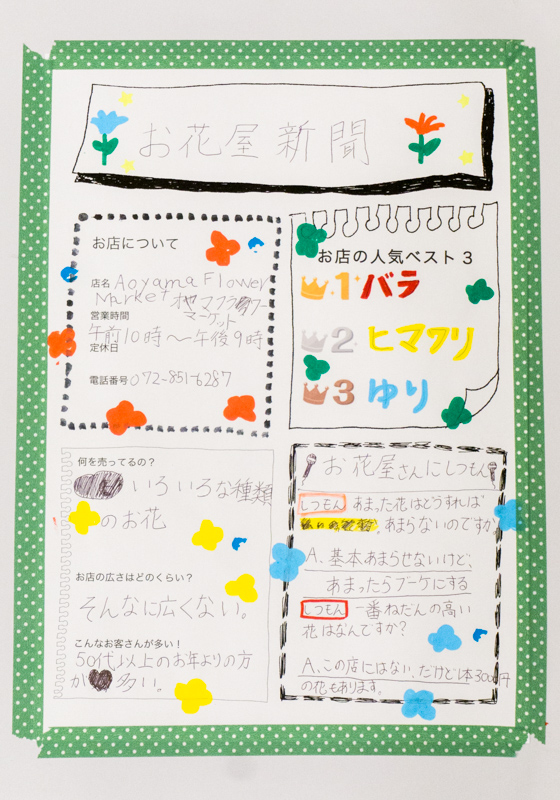 お花屋新聞
お店について
店名 Aoyama Flower
Market
マーケット
営業時間
午前10時〜午後9時
定休日
電話番号 072-851-6287
お店の人気ベスト3
1 バラ
2 ヒマワリ
3 ゆり
何を売ってるの?
いろいろな種類
のお花
お店の広さはどのくらい?
そんなに広くない。
こんなお客さんが多い!
50代以上のお年よりの方
が多い。
お花屋さんにしつもん
しつもん あまった花はどうすれば
あまらないのですか
A、基本あまらせないけど、
あまったらブーケにする
しつもん 一番ねだんの高い
花はなんですか?
A、この店にはない、だけど1本3000円
の花もあります。